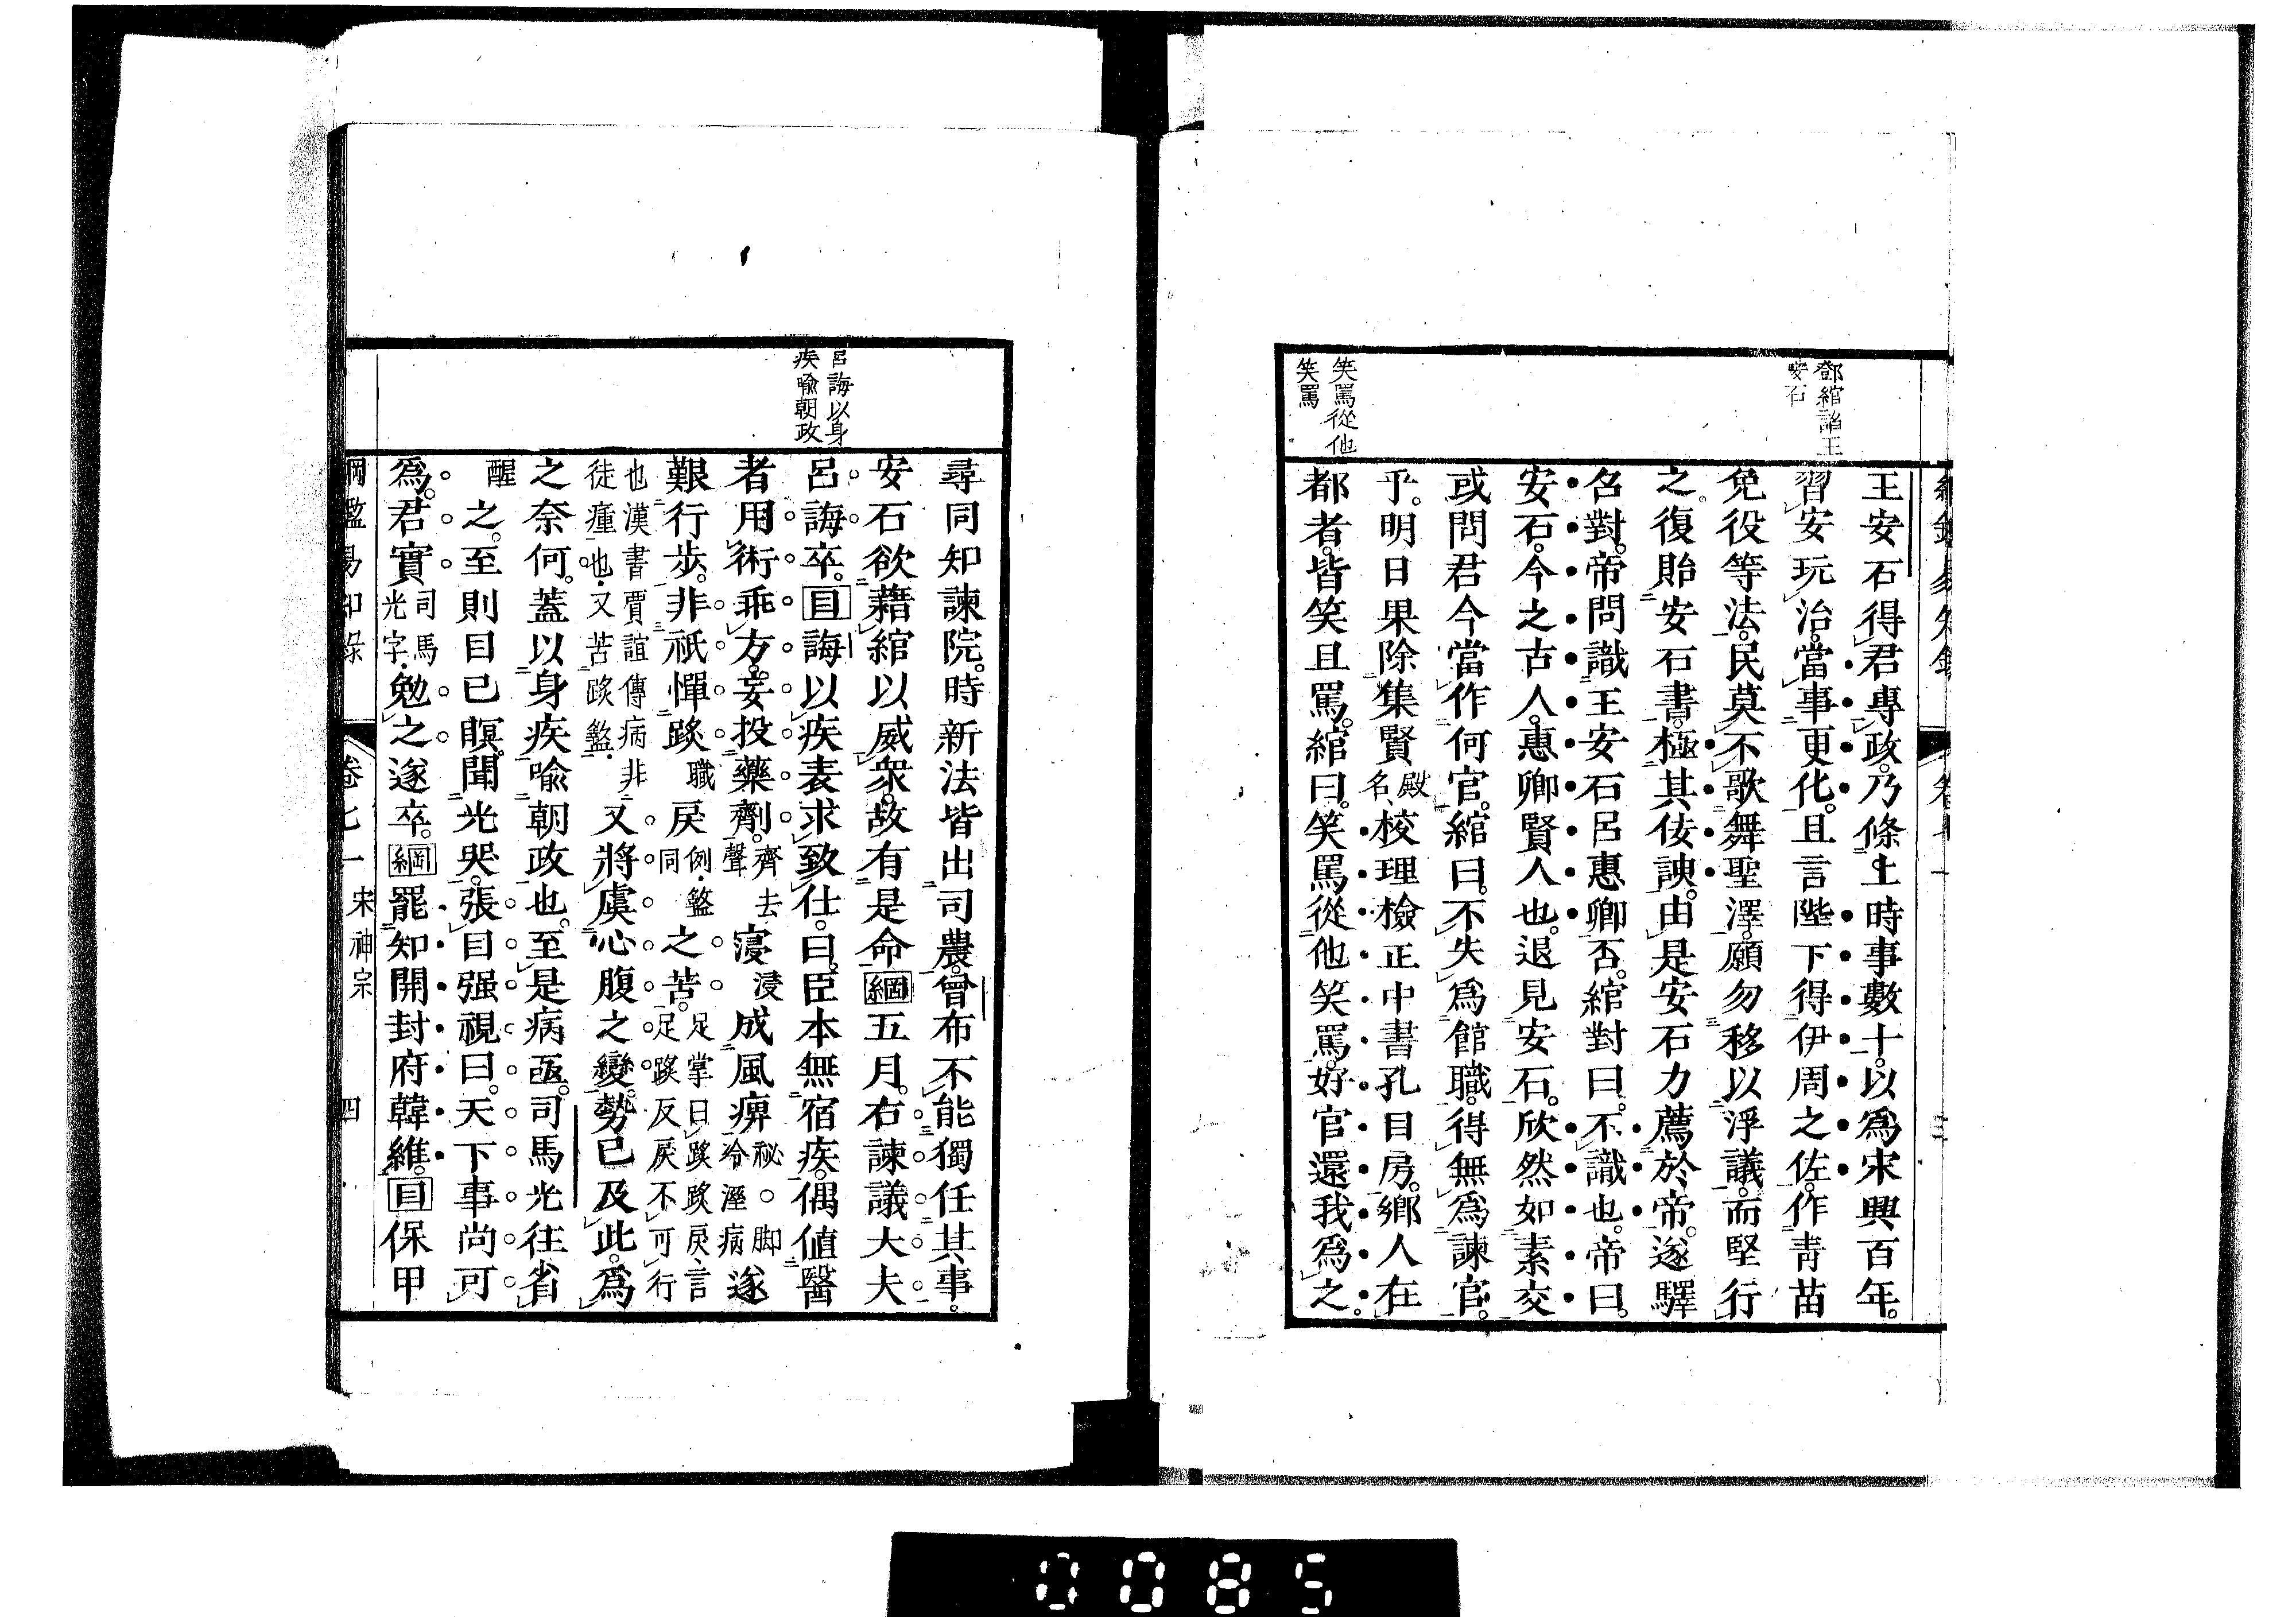 鄧綰諂王
安石
王安石得君專政。乃條上時事數十。以爲宋興百年。
習安玩治。當事更化。且言陛下得伊周之佐。作青苗
免役等法。民莫不歌舞聖澤。願勿移以浮議。而堅行
之。復貽安石書。極其佞諛。由是安石力薦於帝。遂驛
召對。帝問識王安石呂惠卿否。綰對曰。不識也。帝曰。
安石。今之古人。惠卿賢人也。退見安石。欣然如素交
或問君今當作何官。綰曰。不失爲館職。得無爲諫官。
乎。明日果除集賢殿名、校理檢正中書孔目房。鄉人在
笑罵從他
笑罵
都者。皆笑且罵。綰曰。笑罵從他笑罵。好官還我爲之。
尋同知諫院。時新法皆出司農。曾布不能獨任其事。
安石欲藉綰以威衆。故有是命綱五月。右諫議大夫
呂誨以身
疾喻朝政
呂誨卒。目誨以疾表求致仕。曰。臣本無宿疾。偶値醫
者用術乖方。妄投藥劑。齊去聲寖浸成風痹祕。脚冷溼病遂
艱行步。非祇憚䟦職戾例.盭同之苦。足掌曰䟦䟦戾言足䟦反戾不可行
也漢書賈誼傳病非徒瘇也.又苦䟦盭.又將虞心腹之變。勢已及此。爲
之奈何。蓋以身疾喻朝政也。至是病亟。司馬光往省
醒之。至則目已瞑。聞光哭。張目强視曰。天下事尚可
爲。君實司馬光字.勉之遂卒。綱罷知開封府韓維。目保甲
綱鑑易知錄 卷七一 宋神宗 四